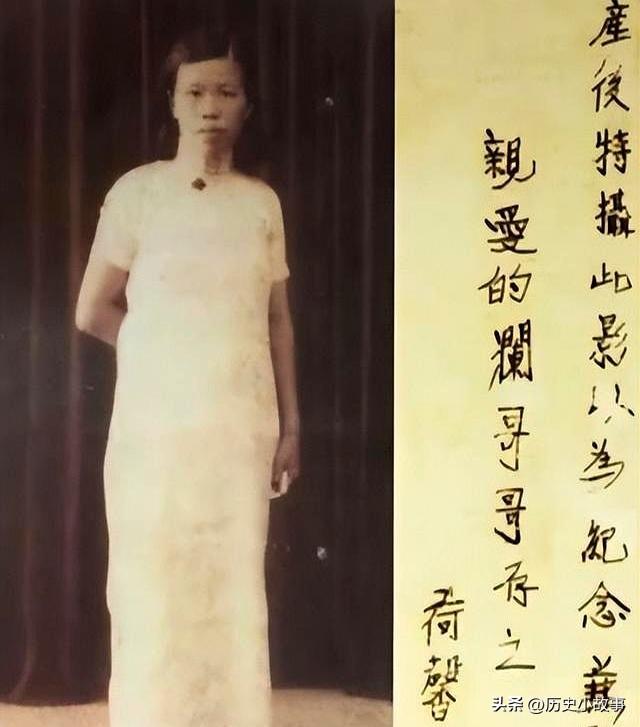 産後特攝此影以為紀念
親愛的瀾哥哥存之
荷馨
头条 @历史小故事